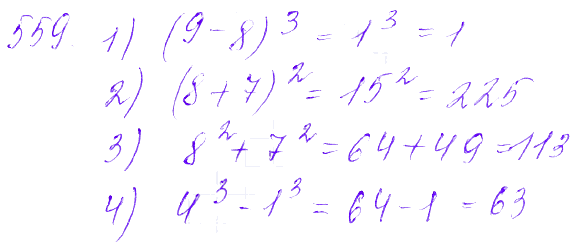 559. 1) (9-8)³ = 1³ = 1
2) (8+7)² = 15² = 225
3) 8² + 7² = 64 + 49 = 113
4) 4³ - 1³ = 64 - 1 = 63